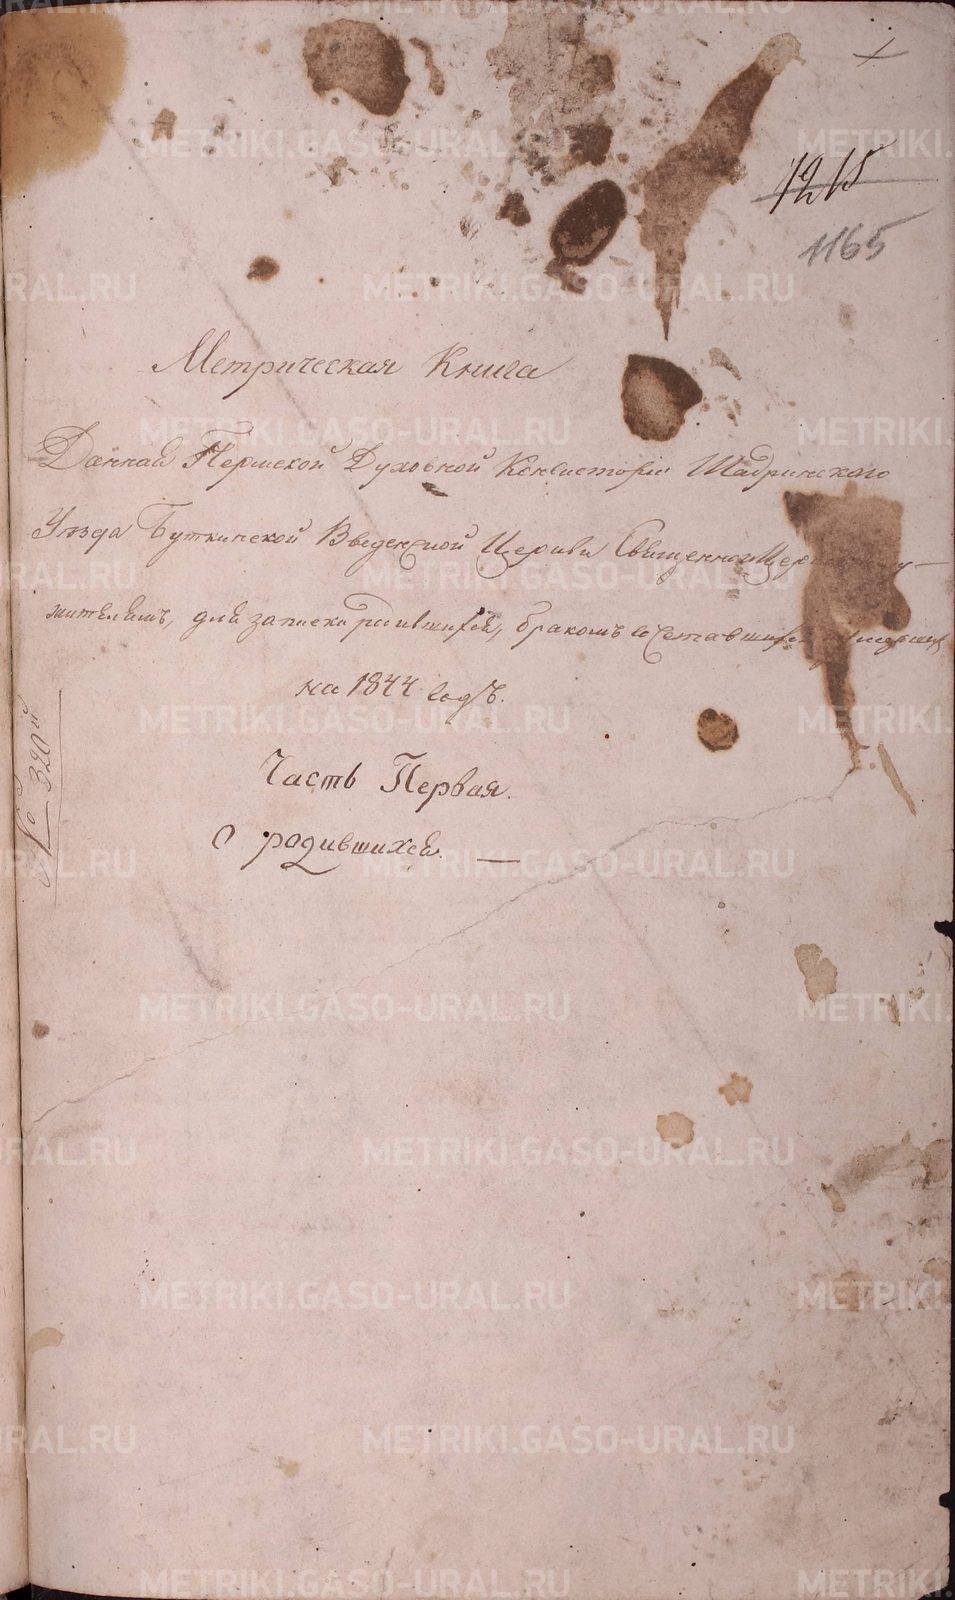 1215
1165
Метрическая Книга
Данная Пермской Духовной Консисторіи Шадринского
Уѣзда Буткинской Введенской Церкви Священноцерковнослу-
жителямъ, для записки родившихся, бракомъ сочетавшихся и умерших
на 1844 годъ.
Часть Первая.
О родившихся. —
№ 320й
METRIKI.GASO-URAL.RU